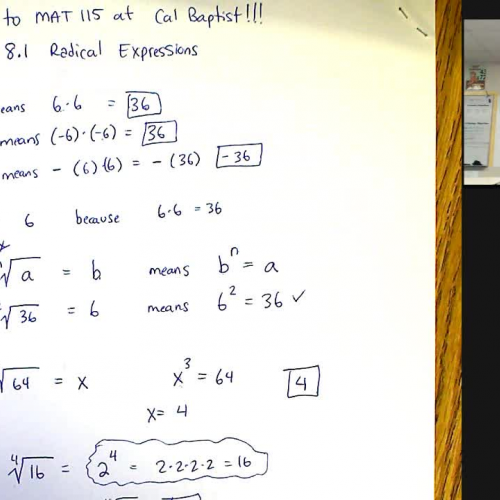 to MAT 115 at Cal Baptist!!!
8.1 Radical Expressions
eans 6·6 = 36
means (-6)·(-6) = 36
means - (6)(6) = - (36) -36
6 because 6·6 = 36
√a = b means bⁿ = a
√36 = 6 means 6² = 36 ✓
√64 = x x³ = 64 4
x = 4
⁴√16 = 2⁴ = 2·2·2·2 = 16